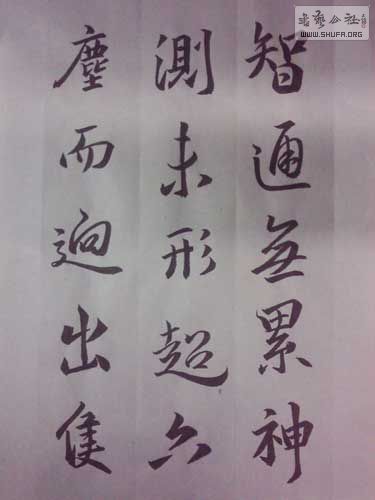 智通無累神
測未形超六
塵而迥出隻
書藝公社
WWW.SHUFA.ORG